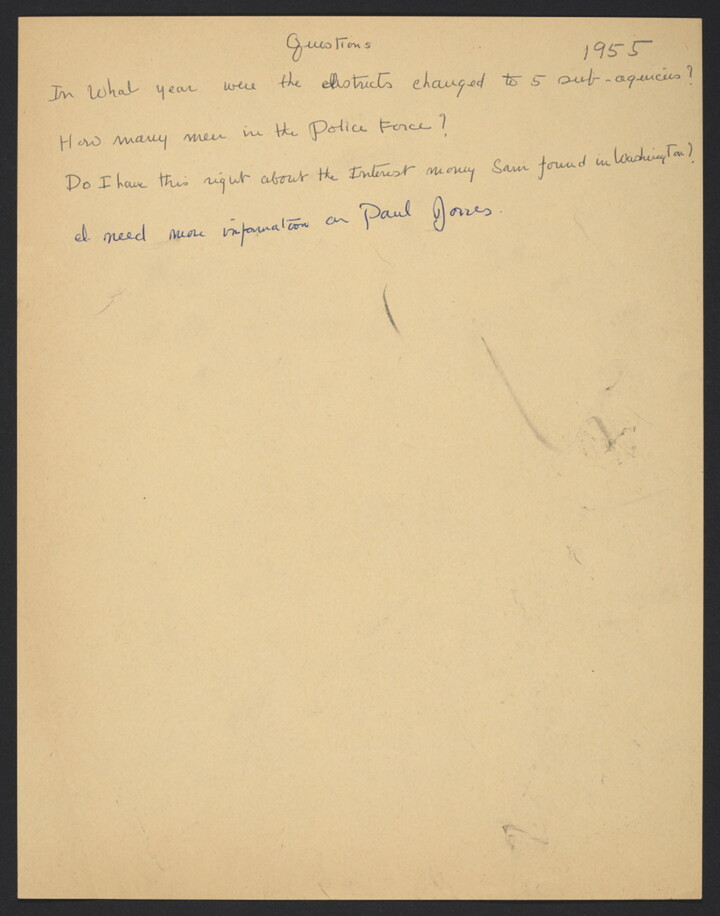 Questions
1955
In What year were the districts changed to 5 sub-agencies?
How many men in the Police Force?
Do I have this right about the Interest money Sam found in Washington?
I need more information on Paul Jones.